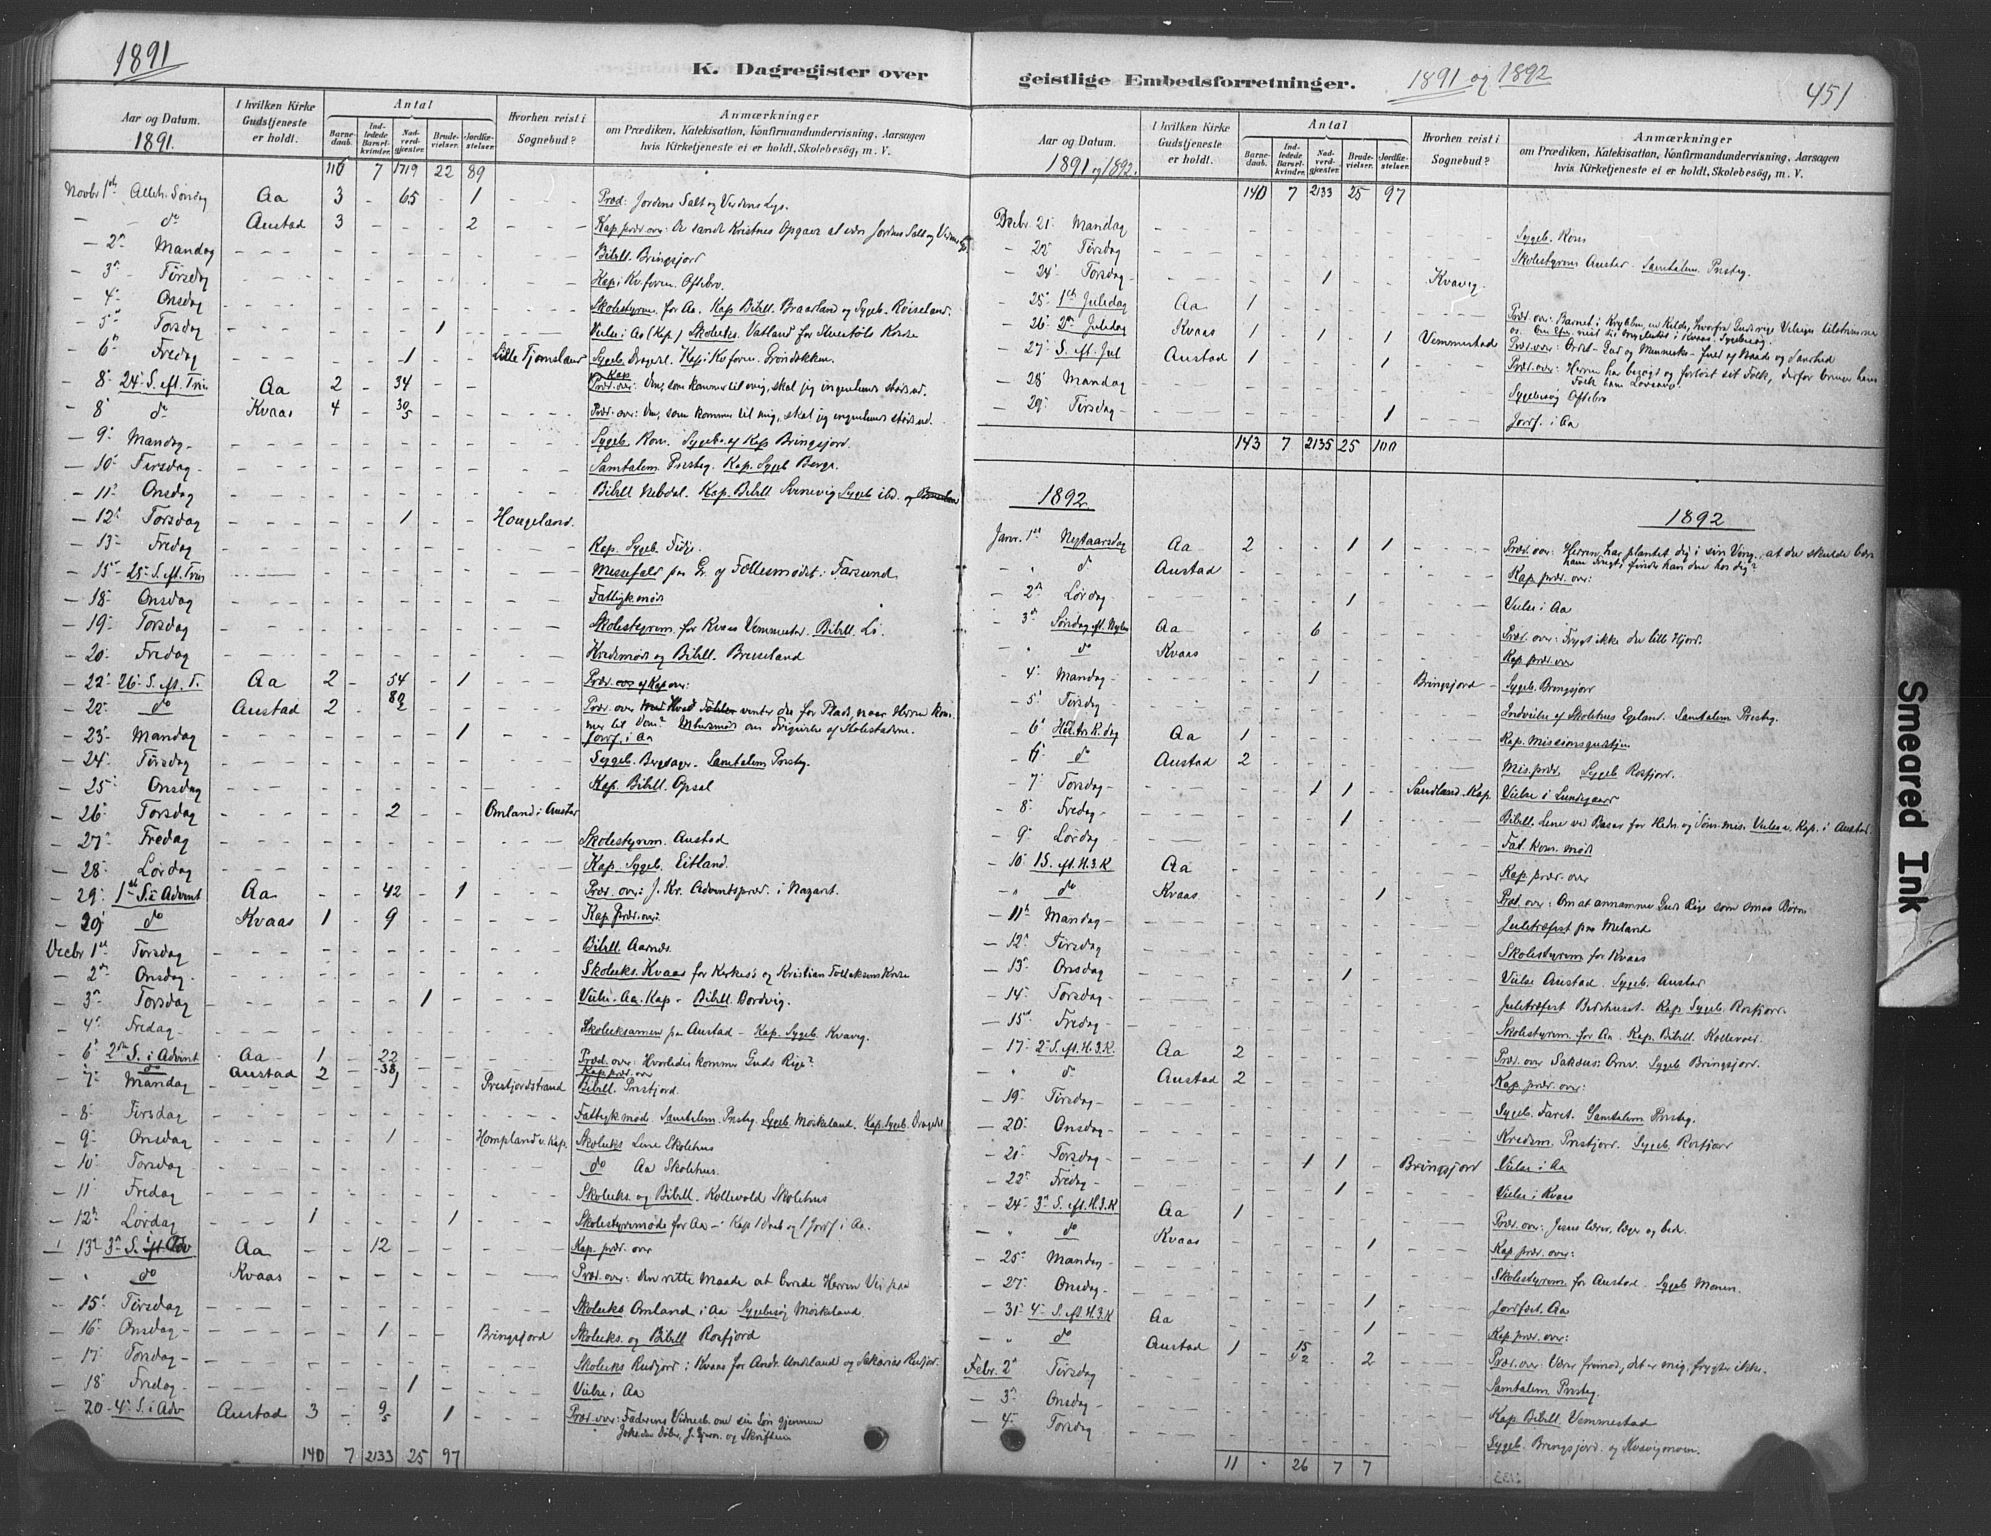 1891
K. Dagregister over
Aar og Datum.
1891.
I hvilken Kirke Gudstjeneste er holdt.
Antal
Barne-daab.
Ind-ledede Barsel-kvinder.
Nad-verd-gjæster.
Brude-vielser.
Jordfæ-stelser.
Hvorhen reist i Sognebud?
Anmærkninger
om Prædiken, Katekisation, Konfirmandundervisning, Aarsagen
hvis Kirketjeneste ei er holdt, Skolebesøg, m. V.
116 7 1719 22 89
Novbr 1ste Alleh. Søndag Aa 3 - 65 - 1 Præd: Jordens Salt og Verdens Lys.
- do Austad 3 2 Kap præd. over: De sande Kristnes Opgave at være Jordens Salt og Verdens
- 2n Mandag Bibell. Bringsjord
- 3n Tirsdag Kap i Kv.foren. Oftebro.
- 4 Onsdag Skolestyrem. for Aa. Kap. Bibell. Braarland og Sygeb. Røiseland.
- 5 Torsdag 1 Vielse i Aa (Kap.) Skoleeks. Vatland for
- 6 Fredag 1 Lille Tjomsland Sygeb. Kap i Kv.foren.
- 8 24 S. eft. Trin Aa 2 - 34 Præd. over: Den, som kommer til mig, skal jeg ingenlunde støde ud.
- 8 do Kvaas 4 - 30 5 Præd. over: Den, som kommer til mig, skal jeg ingenlunde støde ud.
- 9 Mandag Sygeb. Rom. Sygeb. af Kap Bringsjord.
- 10 Tirsdag Samtalem. Prsteg. Kap. Sygeb Berge
- 11 Onsdag Bibell Nebdal. Kap. Bibell Svenevig Sygeb ibd. og
- 12 Torsdag 1 Hougeland.
- 13 Fredag Kap. Sygeb. Fidje.
- 15 25 S. eft. Trin Messefald paa Gr. af Fællesmødet i Farsund
- 18 Onsdag Fattigk.møde
- 19 Torsdag Skolestyrem. for Kvaas Vemmestad. Bibell. Li.
- 20 Fredag Kredsmøde og Bibell. Briseland
- 22 26 S. eft. T. Aa 2 - 54 - 1 Præd. af Kap over:
- 22 do Austad 2 82 Præd. over Hvad venter der for Plads, naar Herren kom-
mer til Dom? Mbusmøde om Frigivelse af Skolestederne.
- 23 Mandag 1 Jordf. i Aa
- 24 Tirsdag Sygeb. Samtalem Prsteg.
- 25 Onsdag Kap. Bibell. Opsal
- 26 Torsdag 2 Omland i Austad
- 27 Fredag Skolestyrem. Austad
- 28 Lørdag Kap. Sygeb. Eitland.
- 29 1ste S. i Advent Aa 42 - 1 Præd. over: J. Kr. Adventspræd. i Nazaret.
- 29 do Kvaas 1 - 9 Kap præd. over:
Decbr 1ste Tirsdag Bibell. Aarnes.
- 2n Onsdag Skoleeks. Kvaas for Kirkesø og Kristian Tollaksens Kreds
- 3n Torsdag 1 Vielse. Aa. Kap - Bibell. Bordvig.
- 4 Fredag Skoleeksamen paa Austad - Kap. Sygeb. Kvavig.
- 6 2den S. i Advent Aa 1 - 22 Præd. over: Hvorledes kommer Guds Rige?
do Austad 2 38 Kap præd. over
- 7 Mandag 1 Prestjordstrand Bibell. Prstfjord.
- 8 Tirsdag Fattigk.møde Samtalem Prsteg Sygeb Mørkeland, Kap. Sygeb.
- 9 Onsdag 1 Hompland v. Kap. Skoleeks Lene Skolehus
- 10 Torsdag do Aa Skolehus.
- 11 Fredag Skoleeks og Bibell. Kollevold Skolehus
- 12 Lørdag 1 1 Skolestyremøde for Aa - Kap 1 Daab og 1 Jordf i Aa.
- 13 3die S. i Adv Aa - - 12 Kap. præd. over
- do Kvaas Præd. over: Den rette Maade at berede Herren Vei paa
- 15 Tirsdag Skoleeks Omland i Aa Sygebesøg Mørkeland
- 16 Onsdag 1 Bringsjord Skoleeks. og Bibell Rosfjord
- 17 Torsdag Skoleeks Rudjord i Kvaas for Andr. Andsland og Sakarias Rudjor.
- 18 Fredag 1 Vielse i Aa
- 20 4 S. i Adv Austad 3 - 9 5 1 Præd. over: Faderens Vidnesb. om sin Søn gjennem
Johs den Døber, J. Gjern. og Skriften
140 7 2133 25 97
geistlige Embedsforretninger.
1891 og 1892
451
Aar og Datum.
1891 og 1892.
I hvilken Kirke Gudstjeneste er holdt.
Antal
Barne-daab.
Ind-ledede Barsel-kvinder.
Nad-verd-gjæster.
Brude-vielser.
Jordfæ-stelser.
Hvorhen reist i Sognebud?
Anmærkninger
om Prædiken, Katekisation, Konfirmandundervisning, Aarsagen
hvis Kirketjeneste ei er holdt, Skolebesøg, m. V.
140 7 2133 25 97
Decbr 21 Mandag Sygeb. Rom
- 22 Tirsdag Skolestyrem Austad. Samtalem. Prsteg.
- 24 Torsdag 1 Kvavig
- 25 1ste Juledag Aa 1 Præd. over: Barnet i Krybben, en Kilde, hvorfra Guds rige Velsign tilstrømme
- 26 2den Juledag Kvaas 1 - 1 - 1 Vemmestad Præd. over: Ordet - Gud og Menneske - fuld af Naade og Sandhed
- 27 S. eft. Jul Austad 1 1 Præd. over: Herren har besøgt og forløst sit Folk, derfor bringer hans
Folk ham Lovsang.
- 28 Mandag Sygebesøg Oftebro
- 29 Tirsdag 1 Jordf. i Aa
143 7 2135 25 100
1892 1892
Janr. 1ste Nytaarsdag Aa 2 - - 1 1 Præd. over: Herren har plantet dig i sin Ving., at du skulde bære
ham Frugt; finder han den hos dig?
" do Austad Kap præd. over:
- 2n Lørdag 1 Vielse i Aa
- 3n Søndag eft. Nytar Aa 6 Præd. over: Frygt ikke du lille Hjord.
" do Kvaas Kap præd. over
- 4 Mandag 1 Bringsjord - Sygeb. Bringsjord
- 5 Tirsdag Indvielse af Skolehus Egeland. Samtalem Prsteg.
- 6 Hel. tr. K. dag Aa 1 Kap. Missionsgudstjen
- 6 do Austad 2 Mis.præd. Sygeb Rosfjord.
- 7 Torsdag 1 1 Sandland. Kap. Vielse i Lundegaard
- 8 Fredag 1 Bibell. Lene ved Basar for Hedn. og Sømmis. Vielse v. Kap. i Austad.
- 9 Lørdag Fat. kom. møde
- 10 1S. eft. H.3.K Aa Kap. præd. over
" do Kvaas 1 Præd. over: Om at annamme Guds Rige som smaa Børn
- 11 Mandag Juletræfest paa Meland
- 12 Tirsdag Skolestyrem for Kvaas
- 13 Onsdag 1 Vielse Austad. Sygeb. Austad
- 14 Torsdag Juletræfest Bedehuset. Kap. Sygeb Rosfjord.
- 15 Fredag Skolestyrem. for Aa. Kap. Bibell. Kollevold.
- 17 2 S. eft. H.3.K. Aa 2 Præd. over Sakæus: Omv. Sygeb Bringsjord.
" do Austad 2 Kap præd. over:
- 19 Tirsdag Sygeb. Faret. Samtalem Prsteg.
- 20 Onsdag Kredsm. Prstfjord. Sygeb. Rosfjord
- 21 Torsdag 1 1 Bringsjord Vielse i Aa
- 22 Fredag 1 Vielse i Kvaas
- 24 3n S. eft. H.3.K Aa 1 Præd. over: Jesus lærer, læger og beder.
" do Kvaas 1 Kap præd. over:
- 25 Mandag Skolestyrem. for Austad. Sygeb Monen.
- 27 Onsdag 1 Jordfæst. Aa
- 31 4 S. eft. H.3.K Aa 1 Kap præd. over:
" do Austad 1 - 15 - 2 Præd. over: Vær frimod, det er mig, frygt ikke.
Febr. 2n Tirsdag Samtalem. Prsteg.
- 3n Onsdag Kap Bibell. Vemmestad
- 4 Torsdag Sygeb. Bringsjord og Kvavigmoen.
11 - 26 7 7
Smeared Ink